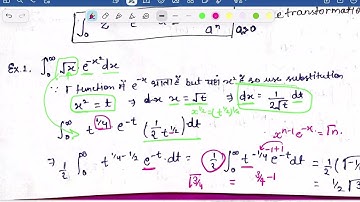 ∫₀^∞ e aⁿ | a>0 e transformation
Ex.1. ∫₀^∞ √x e^{-x²} dx
∵ Γ function में e^{-x} आता है but यहाँ x² है so use substitution
x² = t ⇒ x = √t ⇒ dx = 1/(2√t) dt
x^{1/2} = (t^{1/2})^{1/2}
∫₀^∞ t^{1/4} e^{-t} (1/2 t^{1/2}) dt
x^{n-1} e^{-x} = Γn.
⇒ 1/2 ∫₀^∞ t^{1/4-1/2} e^{-t} dt = (1/2) ∫₀^∞ t^{-1/4} e^{-t} dt = 1/2 (Γ
-1/4+1
Γ3/4 = 3/4-1 = 1/2 Γ3